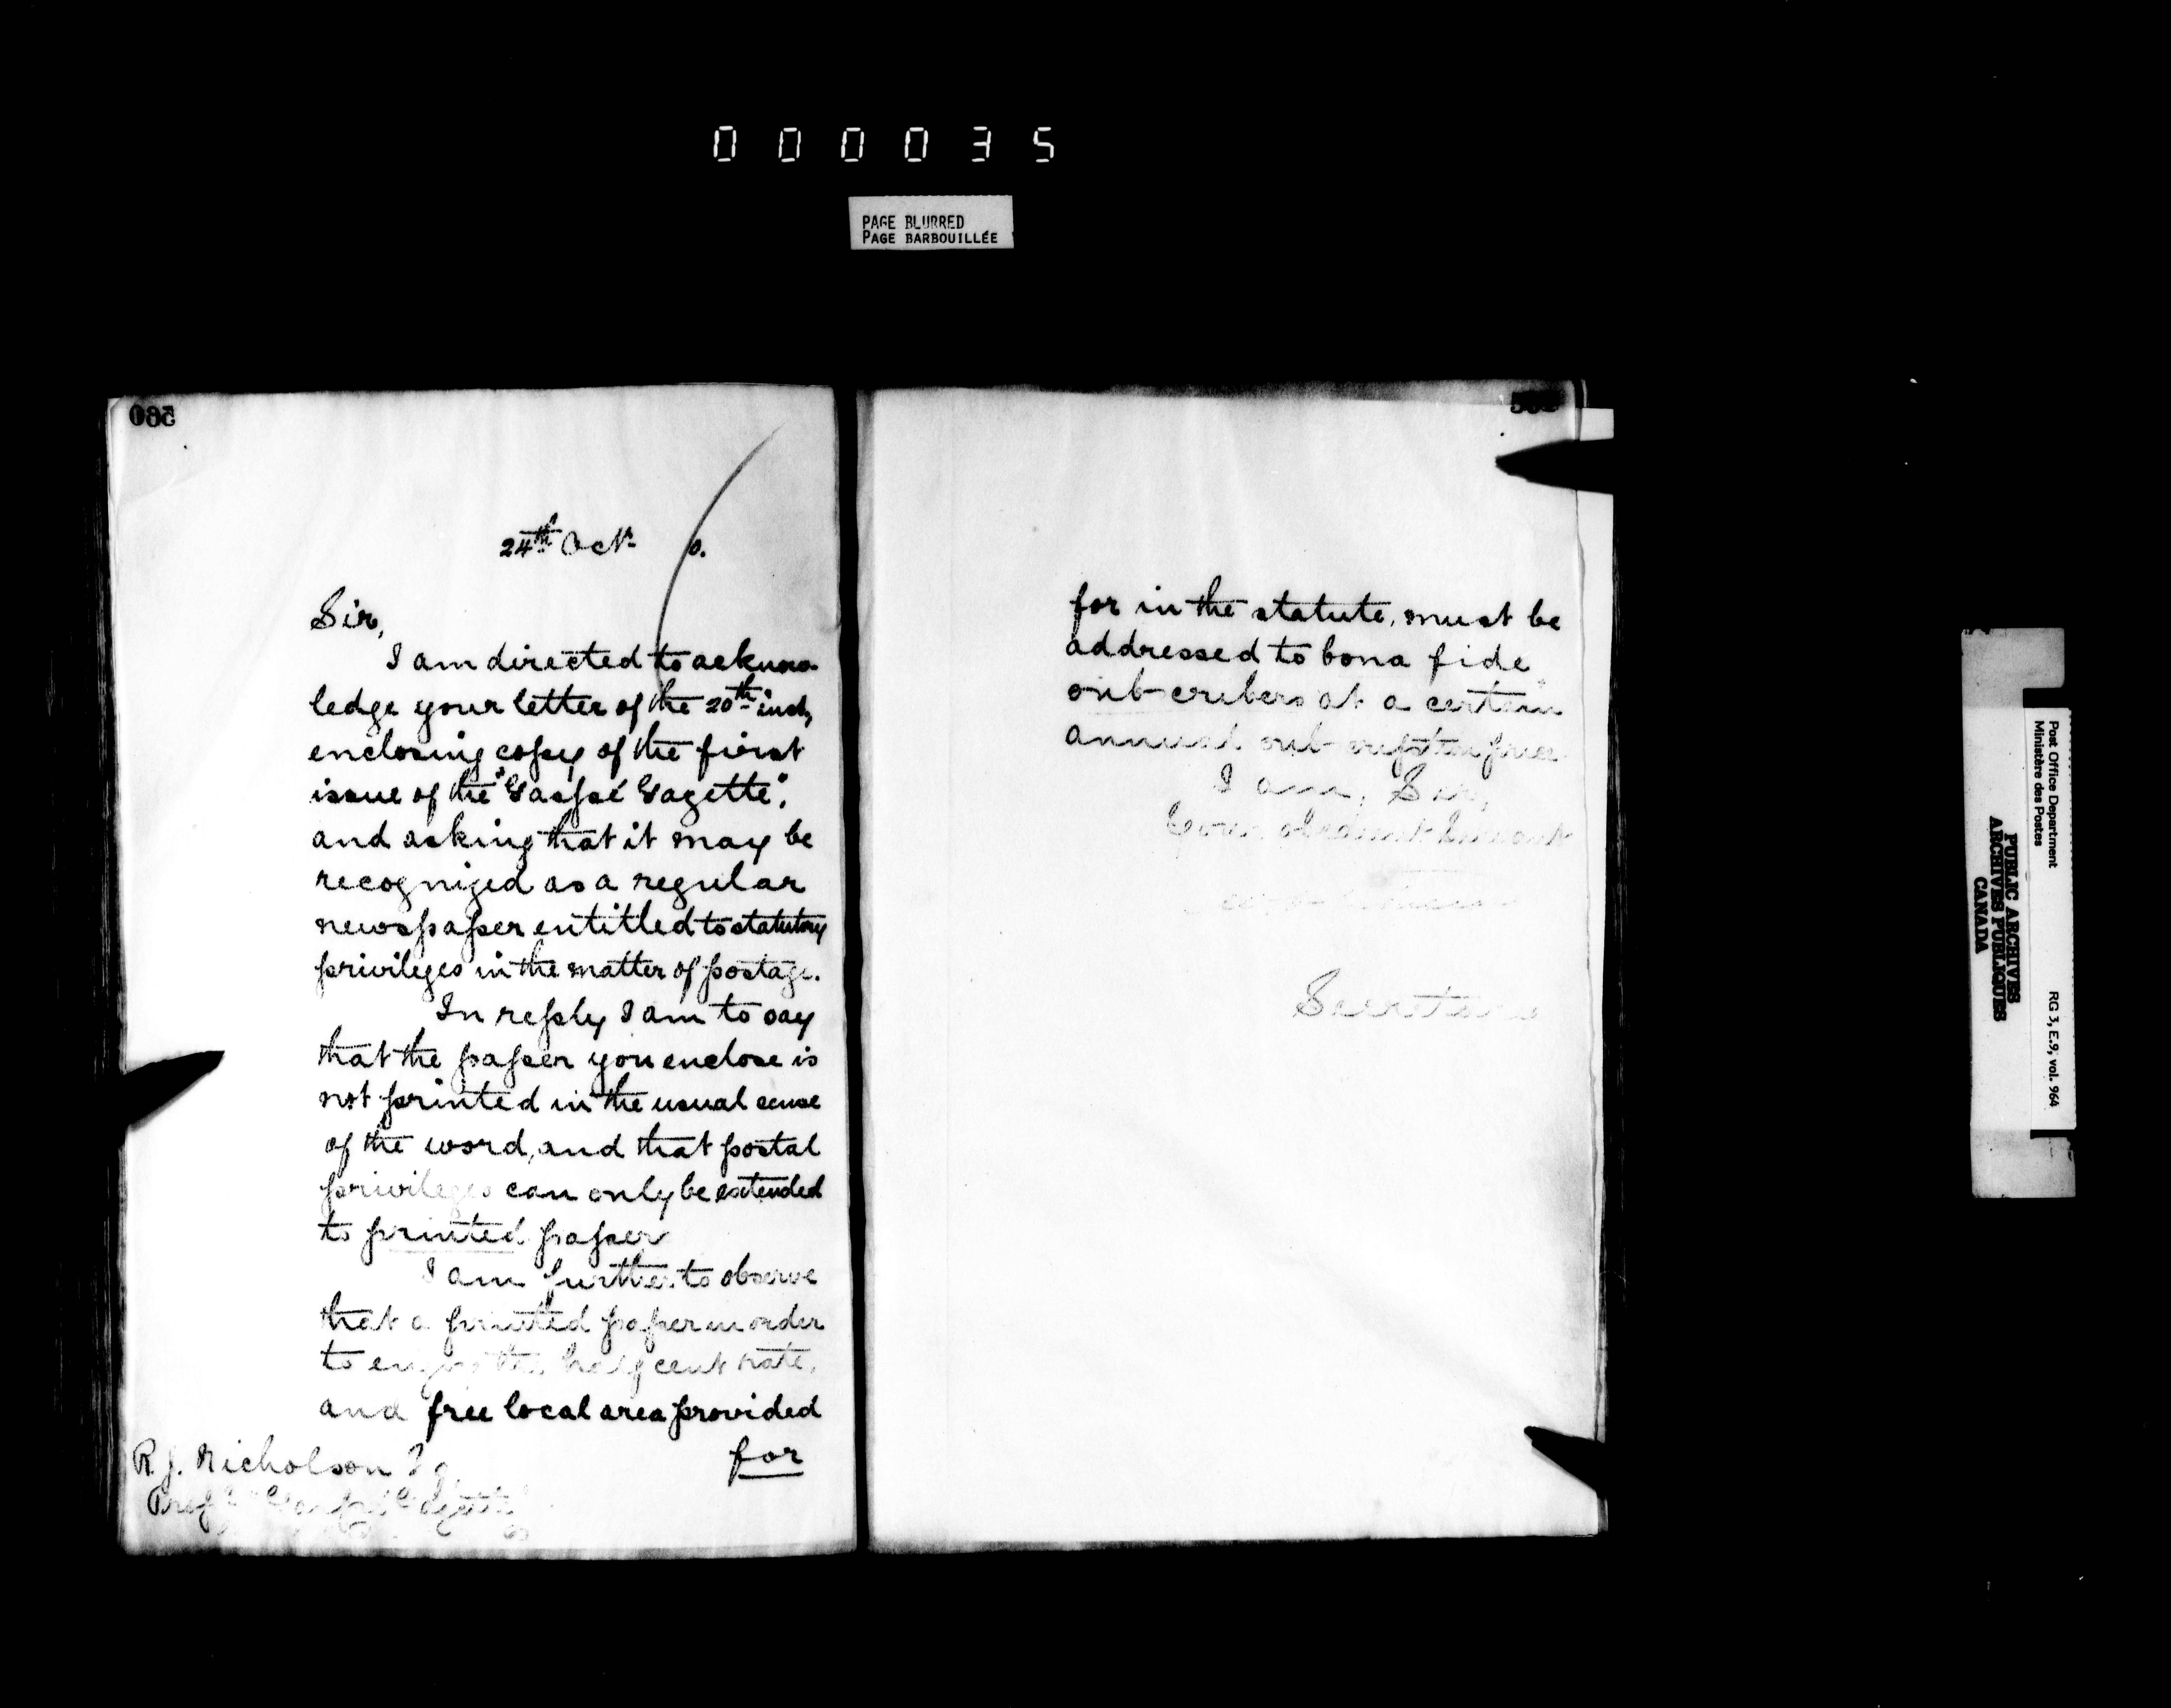 0 0 0 0 3 5
PAGE BLURRED
PAGE BARBOUILLÉE
24th Oct 0.
Sir,
I am directed to acknow-
ledge your letter of the 20th inst,
enclosing copy of the first
issue of the "Gaspé Gazette",
and asking that it may be
recognized as a regular
newspaper entitled to statutory
privileges in the matter of postage.
In reply I am to say
that the paper you enclose is
not printed in the usual sense
of the word, and that postal
privileges can only be extended
to printed paper
I am further to observe
that a printed paper in order
to enjoy the half cent rate,
and free local area provided
for
R. J. Nicholson
"Gaspé Gazette"
for in the statute, must be
addressed to bona fide
subscribers at a certain
annual subscription price
I am, Sir,
Your obedient Servant
Secretary
Post Office Department
Ministère des Postes
RG 3, E.9, vol. 964
PUBLIC ARCHIVES
ARCHIVES PUBLIQUES
CANADA